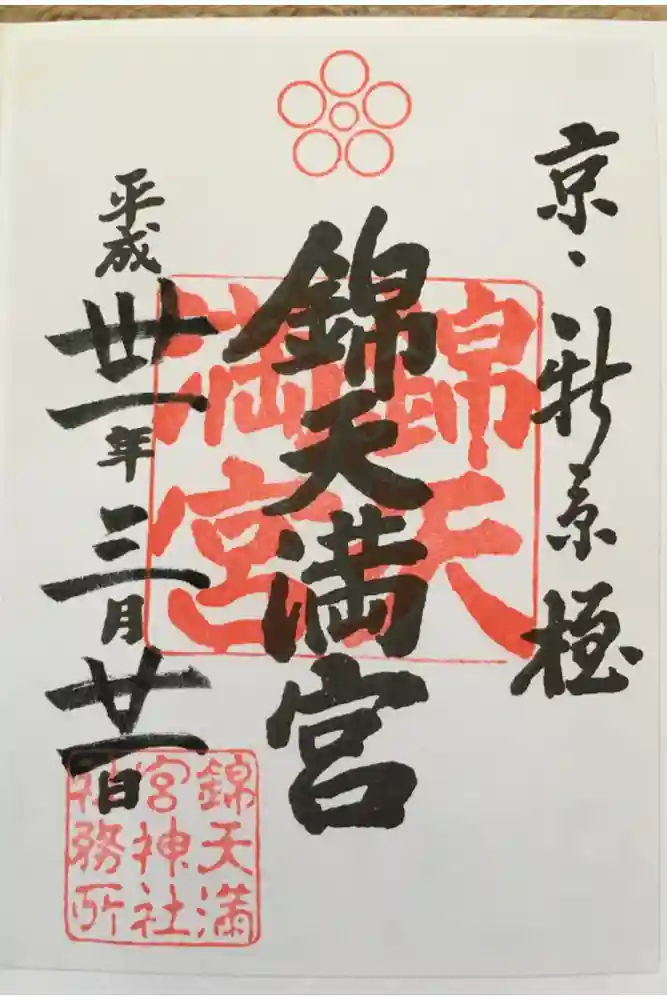 京・新京極
錦天満宮
錦天
満宮
平成卅一年三月廿一日
錦天満
宮神社
社務所